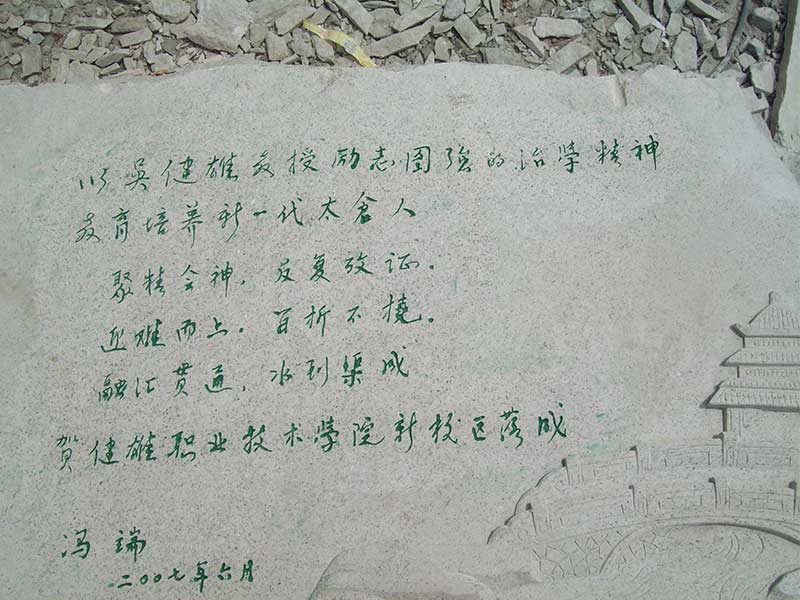 以吴健雄教授励志图強的治學精神
教育培养新一代太倉人
聚精会神，反复攷证。
迎难而上。百折不撓。
融汇贯通，水到渠成
賀健雄职业技术学院新校区落成
冯端
二〇〇七年六月